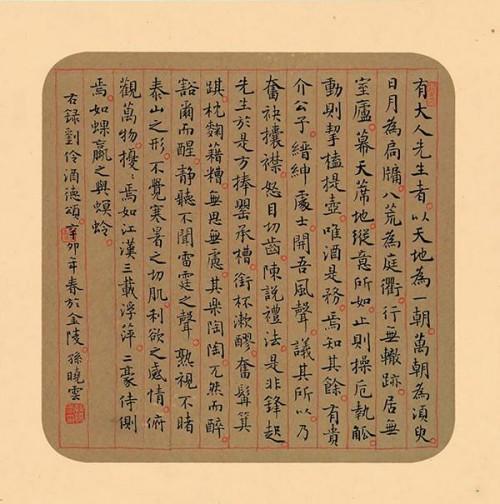 有大人先生者以天地為一朝萬朝為湏臾
日月為扃牖八荒為庭衢行無轍跡居無
室廬幕天席地縱意所如止則操卮執觚
動則挈榼提壺唯酒是務焉知其餘有貴
介公子縉紳處士聞吾風聲議其所以乃
奮袂攘襟怒目切齒陳說禮法是非鋒起
先生於是方捧罌承槽銜杯漱醪奮髯箕
踑枕麴藉糟無思無慮其樂陶陶兀然而醉
豁爾而醒靜聽不聞雷霆之聲熟視不睹
泰山之形不覺寒暑之切肌利欲之感情俯
觀萬物擾々焉如江漢三載浮萍二豪侍側
焉如蜾蠃之與螟蛉
右録劉伶酒德頌辛卯年春於金陵孫曉雲